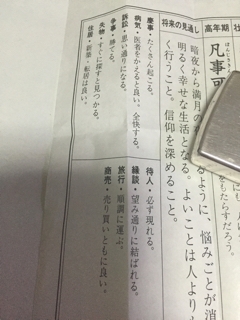 壮
高年期
将来の見通し
凡事可
はんじき
をもたらすだろう。
暗夜から満月の
るように、悩みごとが消
明るく幸せな生活となる。よいことは人より
く行うこと。信仰を深めること。
慶事・たくさん起こる。
病気・医者をかえると良い。全快する。
訴訟・思い通りになる。
争事・勝てる。
失物・すぐに探すと見つかる。
住居・新築・転居は良い。
待人・必ず現れる。
縁談・望み通りに結ばれる。
旅行・順調に運ぶ。
商売・売り買いともに良い。